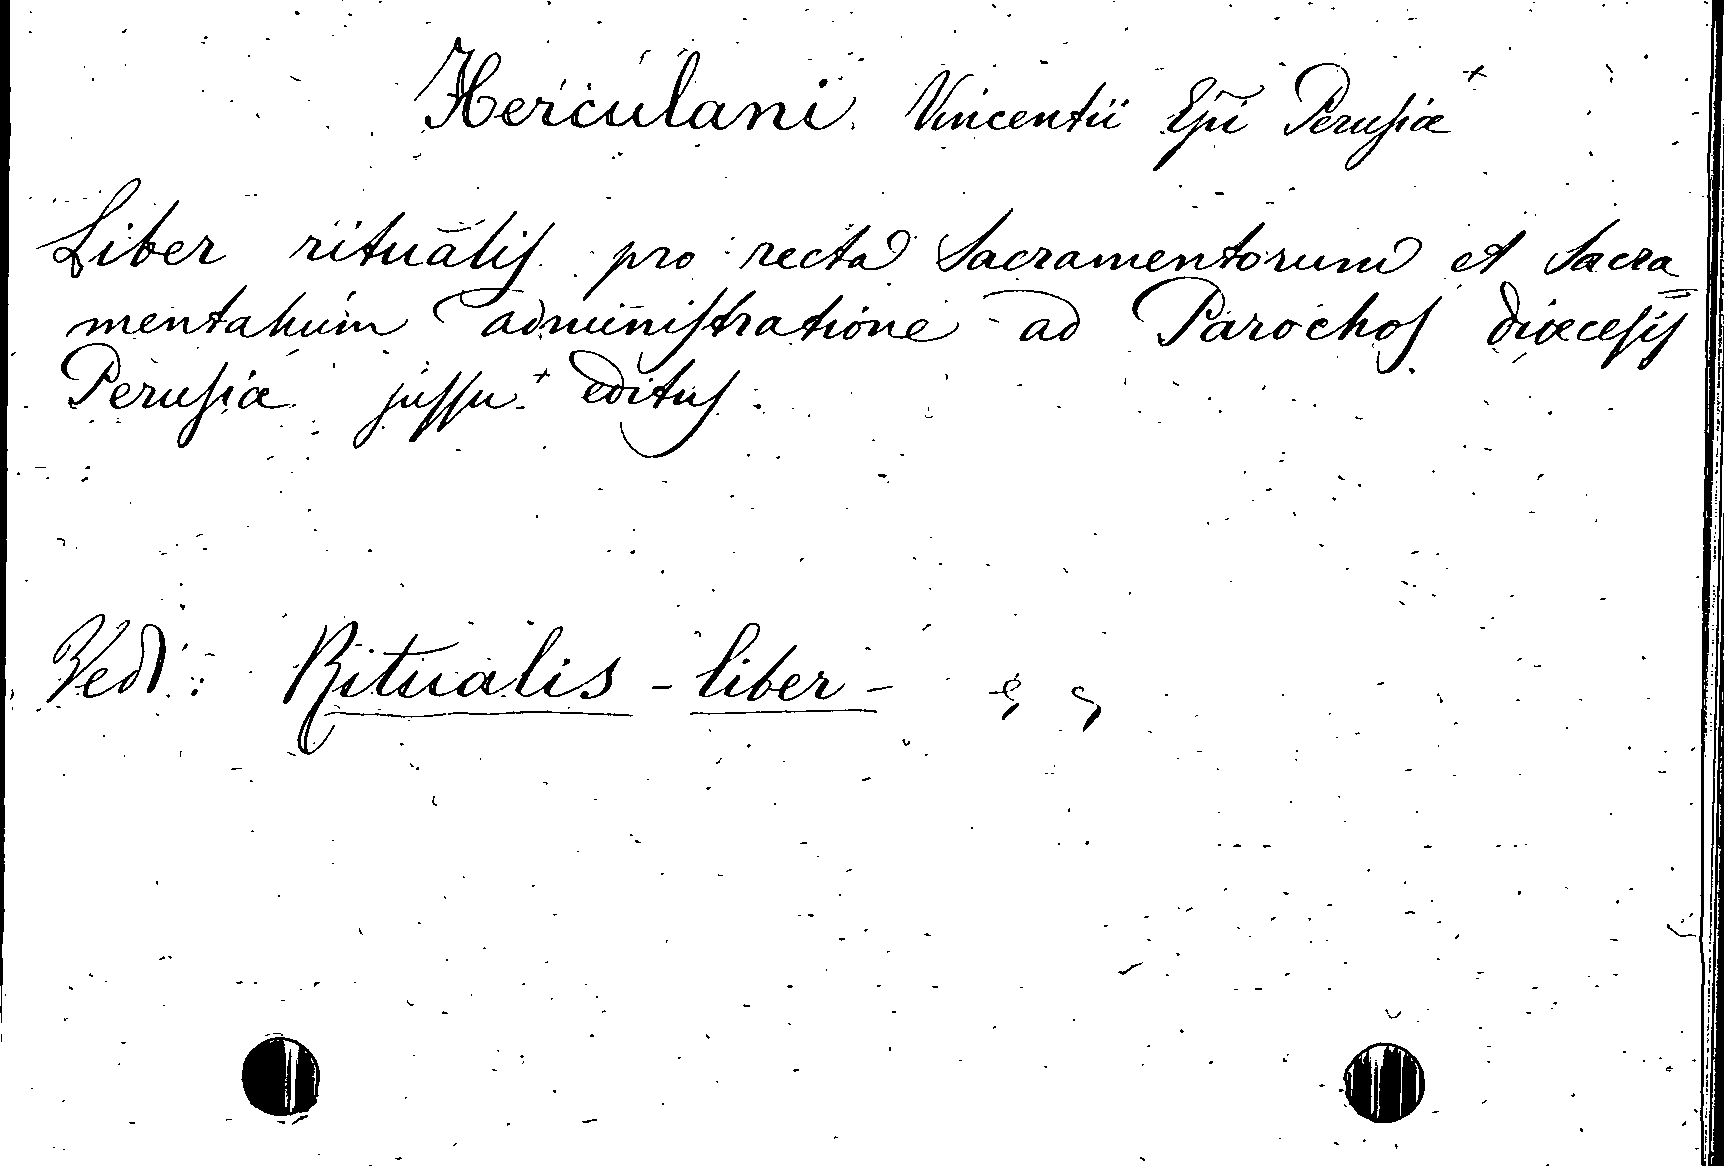 Herculani Vincentii Epĩ Perusiæ +
Liber ritualis pro recta Sacramentorum et Sacra=
mentalium administratione ad Parochos diœcesis
Perusiæ jussu + editus.
Vedi: Ritualis - liber -